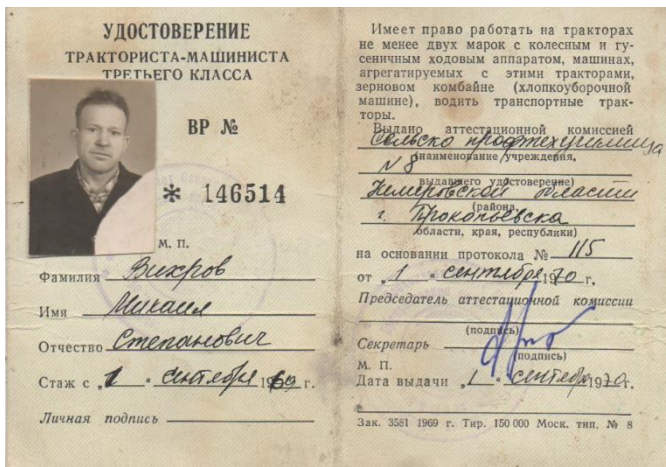 УДОСТОВЕРЕНИЕ
ТРАКТОРИСТА-МАШИНИСТА
ТРЕТЬЕГО КЛАССА
ВР №
* 146514
М. П.
Фамилия Вихров
Имя Михаил
Отчество Степанович
Стаж с „1“ сентября 1969 г.
Личная подпись
Имеет право работать на тракторах
не менее двух марок с колесным и гу-
сеничным ходовым аппаратом, машинах,
агрегатируемых с этими тракторами,
зерновом комбайне (хлопкоуборочной
машине), водить транспортные трак-
торы.
Выдано аттестационной комиссией
Сельско профтехучилища
(наименование учреждения,
№ 8
выдавшего удостоверение)
Кемеровской области
(района,
г. Прокопьевска
области, края, республики)
на основании протокола № 115
от „1“ сентября 1970 г.
Председатель аттестационной комиссии
(подпись)
Секретарь
(подпись)
М. П.
Дата выдачи „1“ сентября 1970 г.
Зак. 3581 1969 г. Тир. 150 000 Моск. тип. № 8